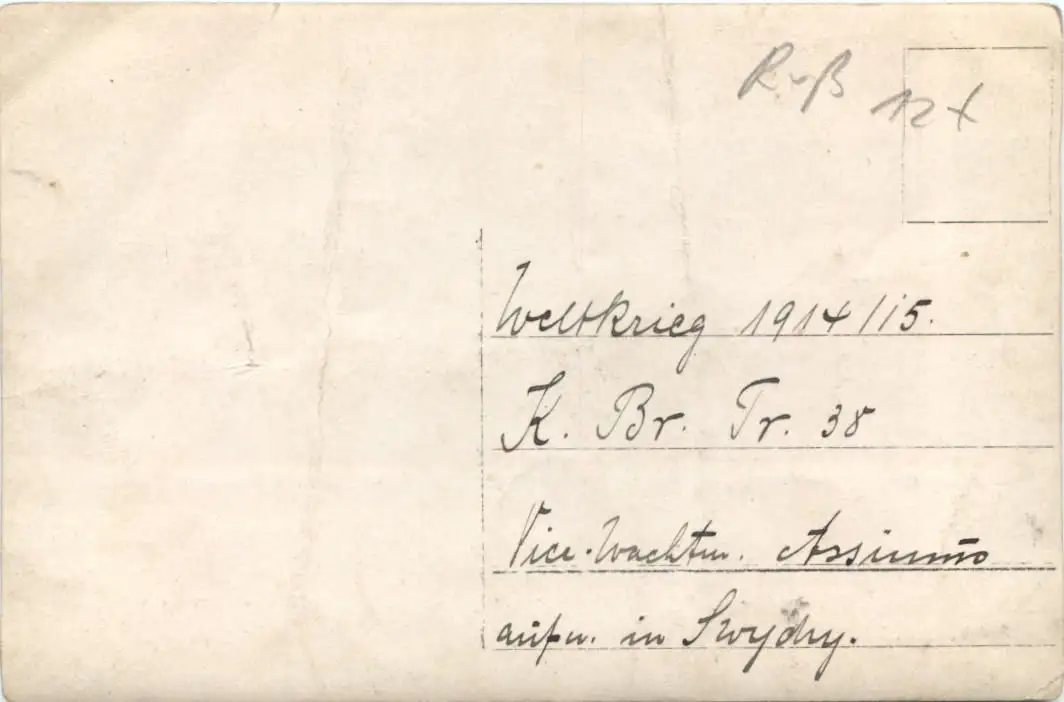 Ruß 12 x
Weltkrieg 1914/15.
K. Br. Tr. 38
Vice-Wachtm.
aufn. in Swydny.